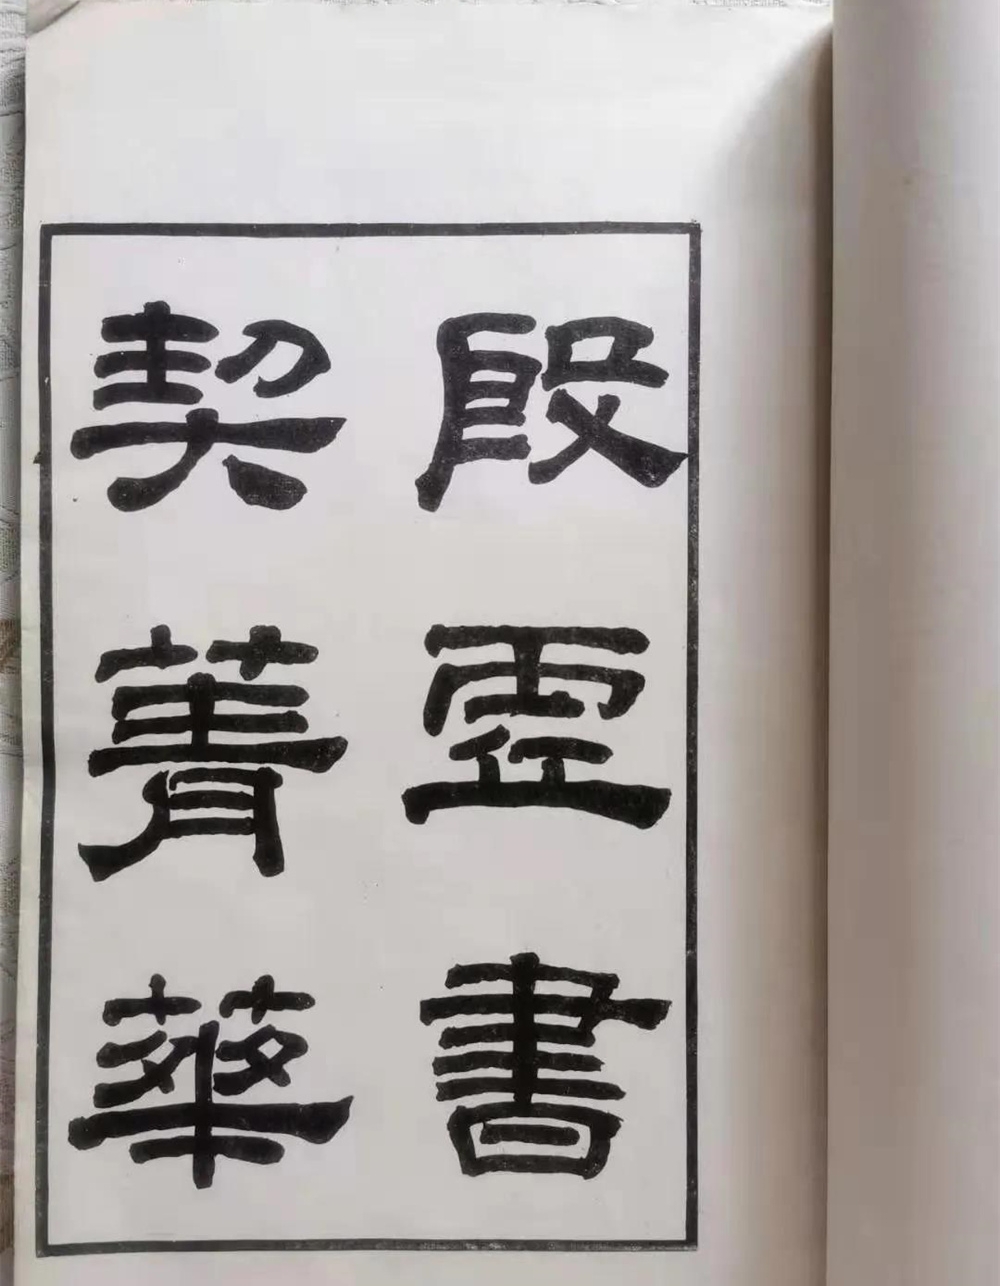 殷虛書
契菁華